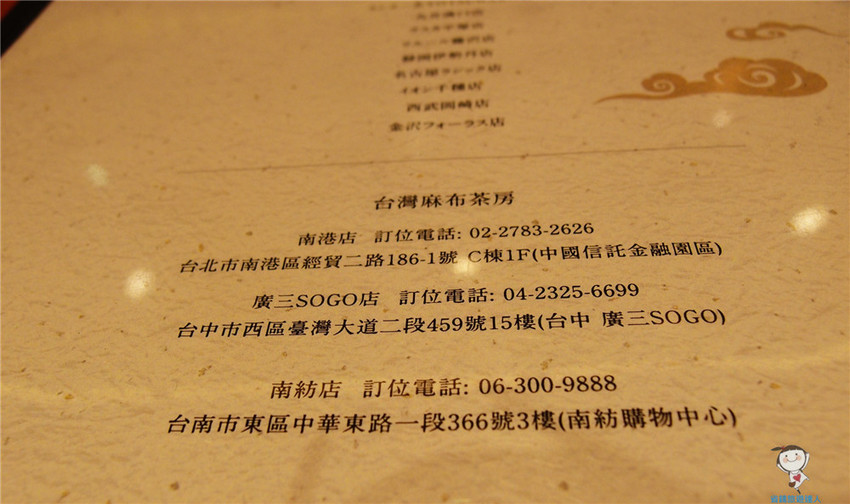 名古屋ラシック店
イオン千種店
西武岡崎店
金沢フォーラス店
台灣麻布茶房
南港店 訂位電話: 02-2783-2626
台北市南港區經貿二路186-1號 C棟1F(中國信託金融園區)
廣三SOGO店 訂位電話: 04-2325-6699
台中市西區臺灣大道二段459號15樓(台中 廣三SOGO)
南紡店 訂位電話: 06-300-9888
台南市東區中華東路一段366號3樓(南紡購物中心)